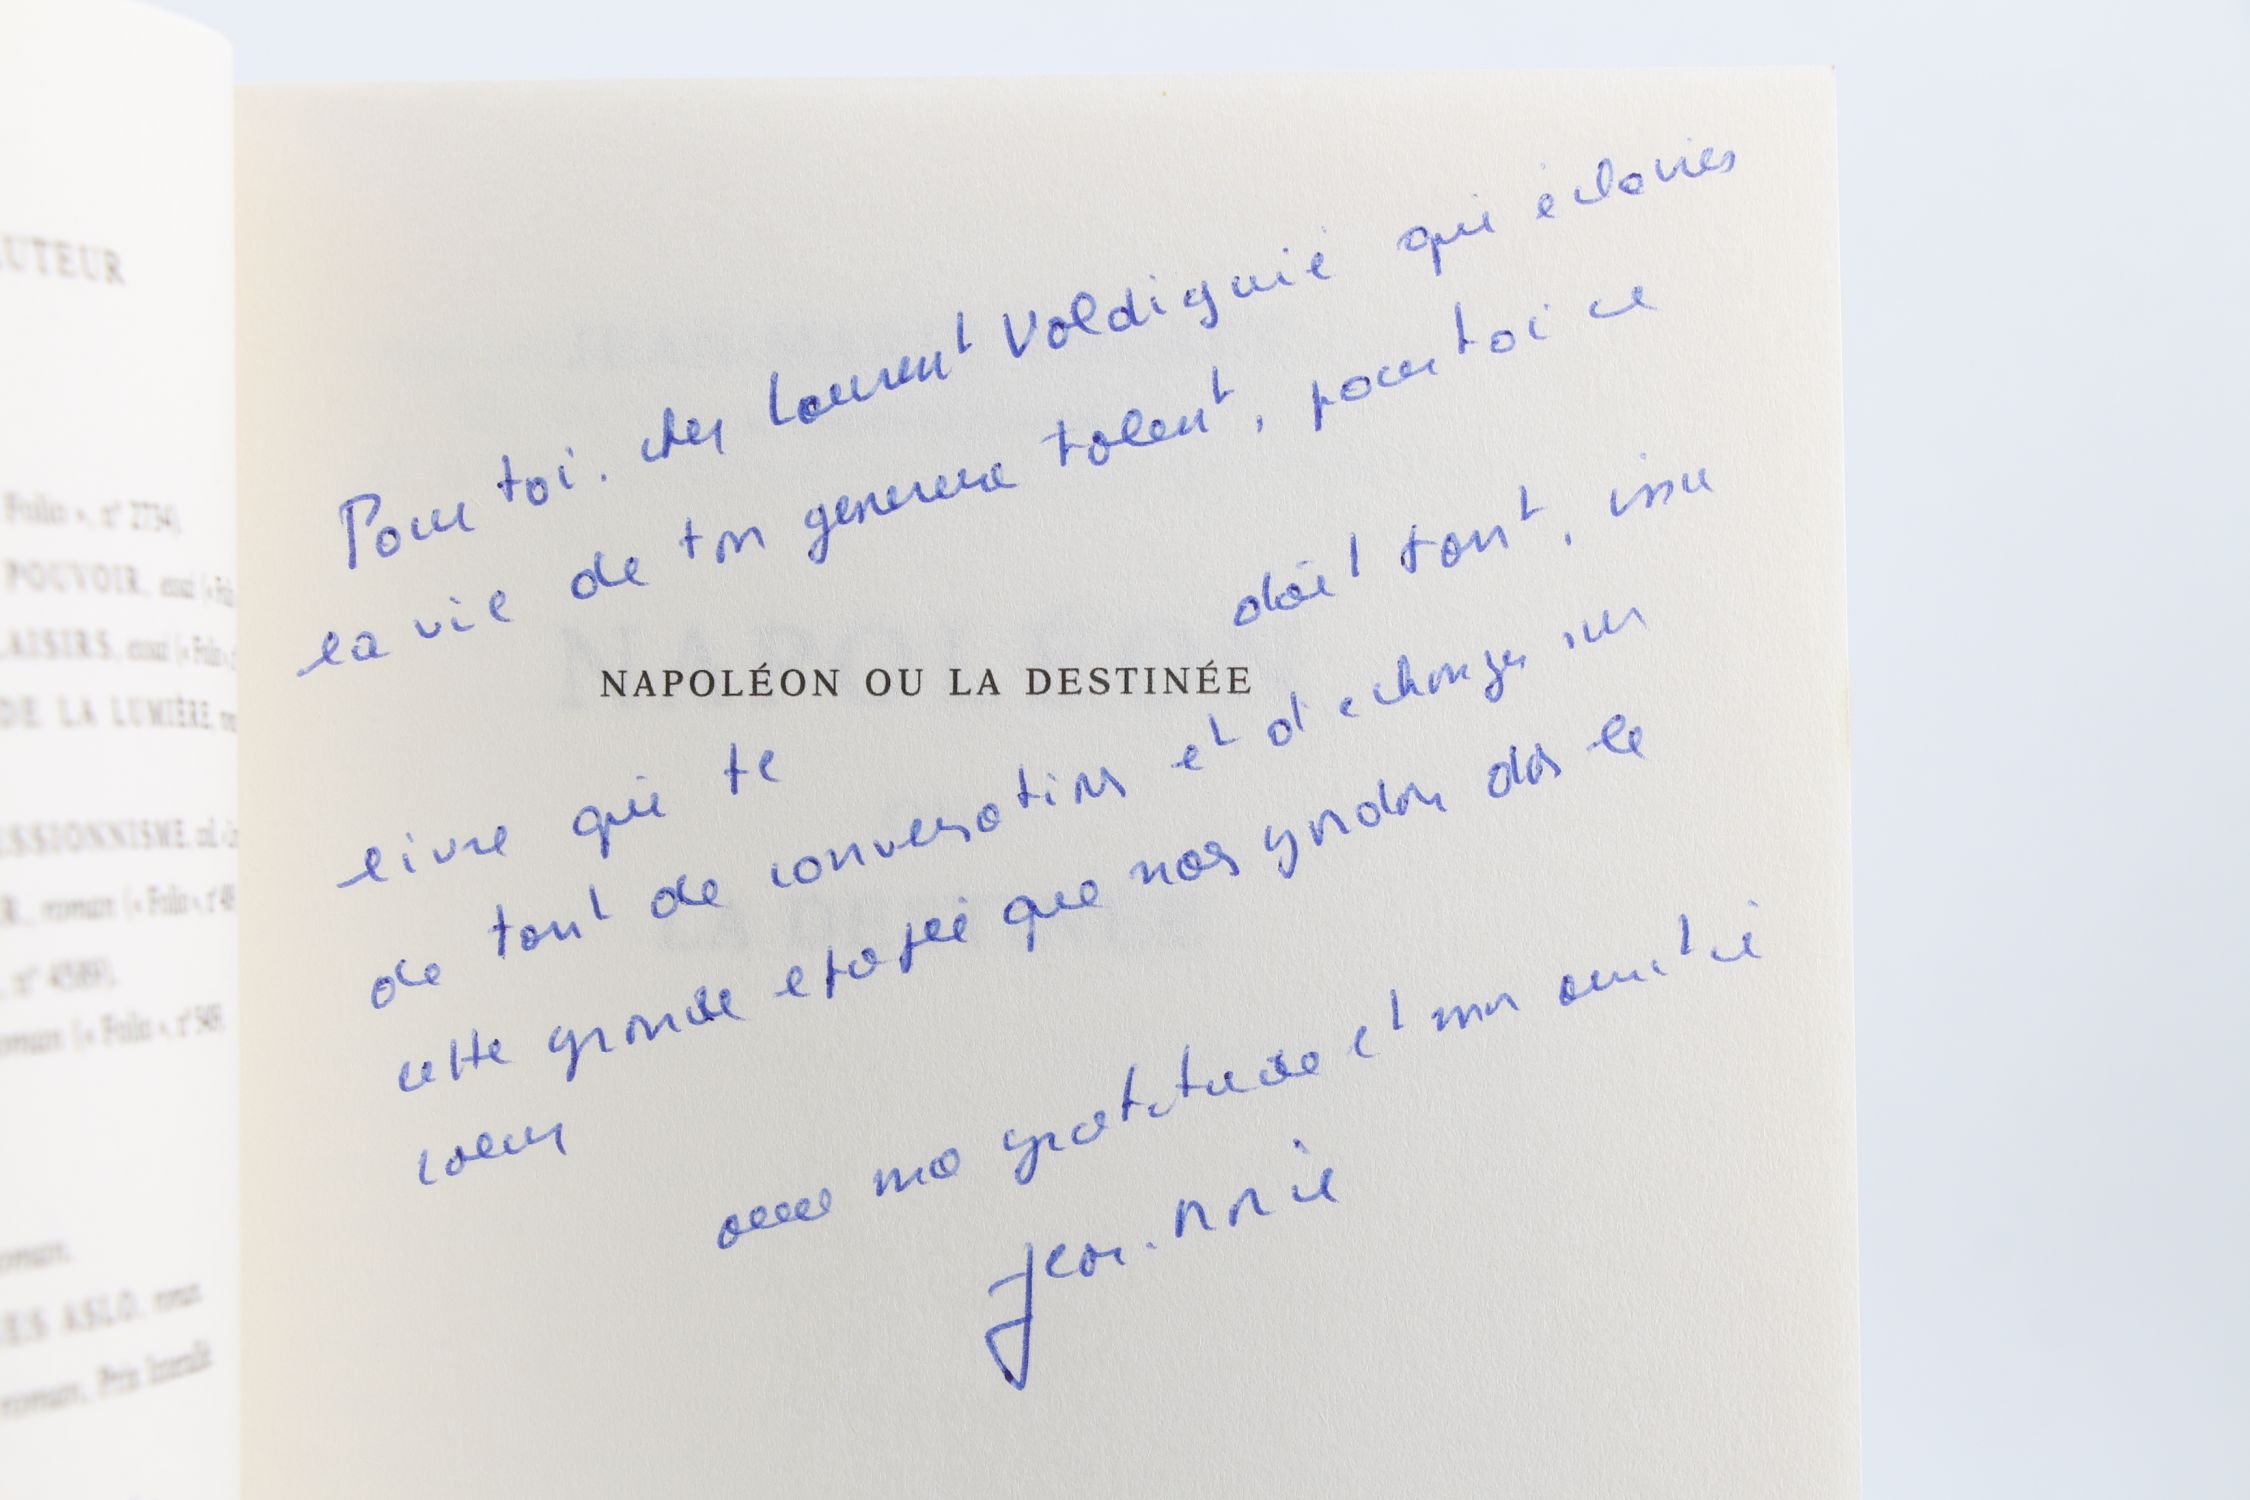 AUTEUR
Folio », n° 2734).
POUVOIR, essai (« Folio
LAISIRS, essai (« Folio », n°
DE LA LUMIÈRE, rom
ESSIONNISME, col. «
R, roman (« Folio », n° 49
, n° 4589).
oman (« Folio », n° 549
oman.
ES ASLO, roman.
roman. Prix Interallié
Pour toi, cher Laurent Valdiguié qui éclaires
la vie de ton genereux talent, pour toi ce
NAPOLÉON OU LA DESTINÉE
livre qui te doit tant, issu
de tant de conversations et d'echanges sur
cette grande epopée que nous gardons dans le
coeur
avec ma gratitude et mon amitié
Jean-Marie